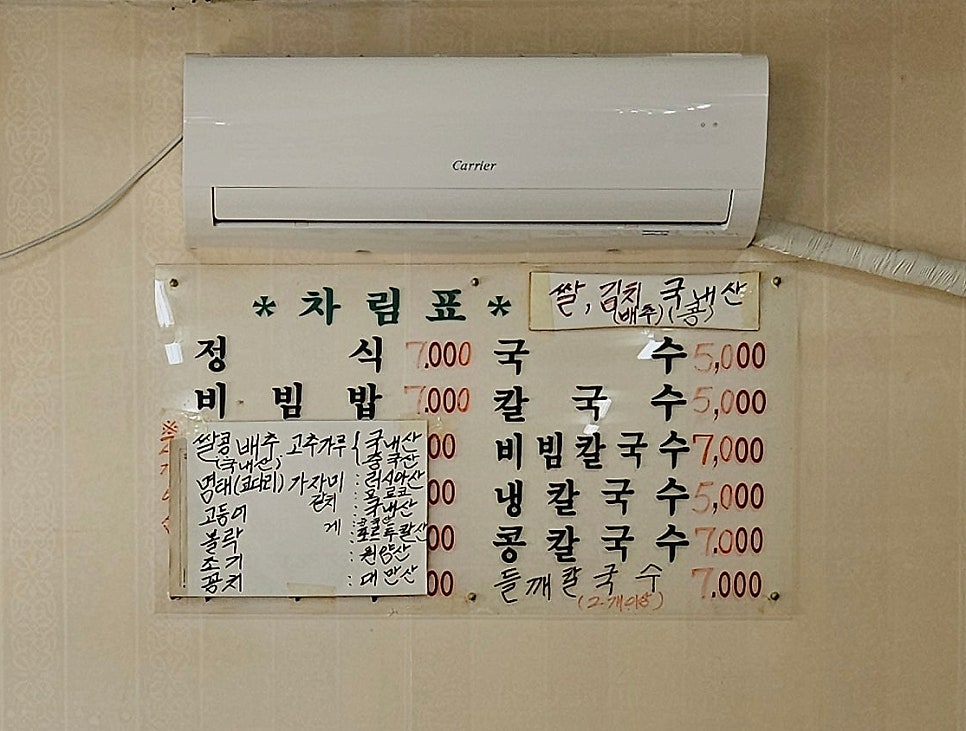 Carrier
* 차림표 *
쌀, 김치 국내산
(배추) (콩)
정식 7.000
비빔밥 7.000
국수 5,000
칼국수 5,000
비빔칼국수 7,000
냉칼국수 5,000
콩칼국수 7.000
들깨칼국수 7.000
(2개이상)
쌀콩 배추 고추가루 { 국내산
(국내산) 중국산
명태(코다리) 가자미 : 러시아산
갈치 : 모로코
고등어 : 국내산
게
볼락 : 포르투칼산
조기 : 원양산
꽁치 : 대만산